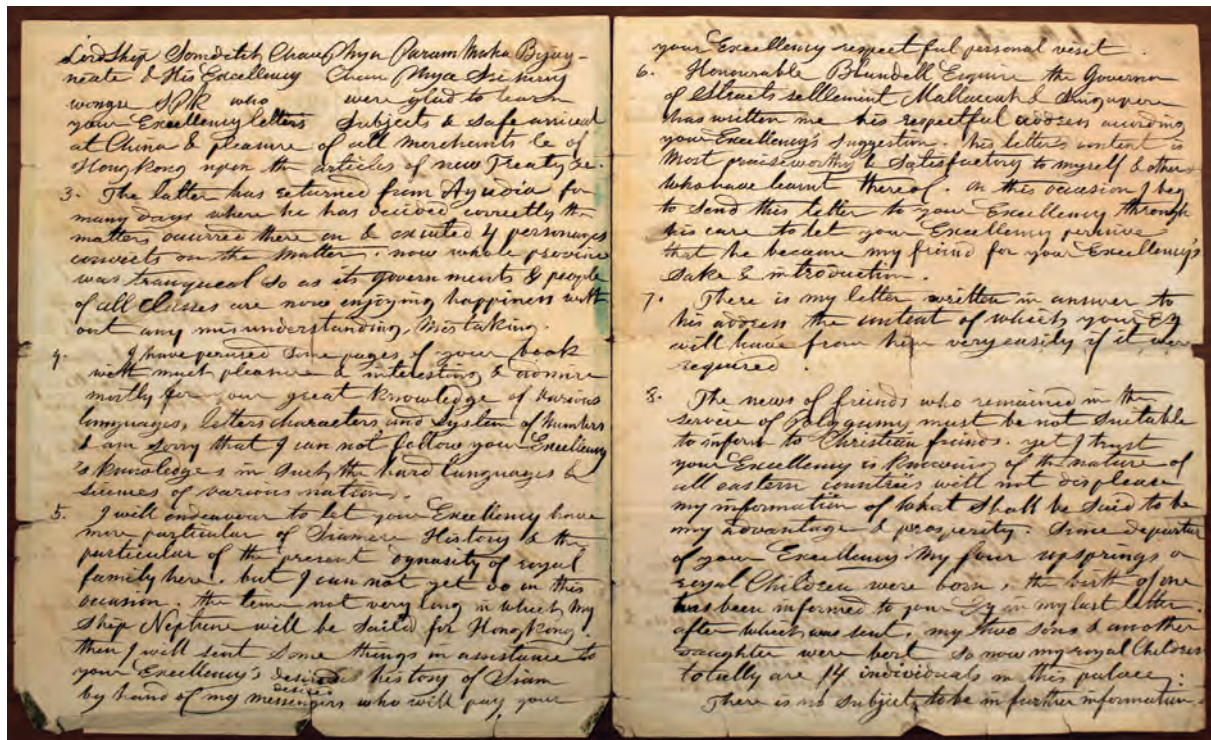 Lordship Somditch Chau Phya Param Maha Bijay-
neate & His Excellency Chau Phya Sri Suriy
wongse SPK who were glad to learn
your Excellency letters Subjects & safe arrived
at China & pleasure of all merchants &c of
Hong kong upon the articles of new Treaty &c.
3. The latter has returned from Ayudia for
many days where he has decided correctly the
matters occurred there on & executed 4 personages
convicts on the matter. now whole province
was tranqueal so as its governments & people
of all classes are now enjoying happiness with
out any misunderstanding, mistaking.
4. I have perused some pages of your book
with much pleasure & interesting & admire
mostly for your great knowledge of various
languages, letters characters and System of Numbers
I am sorry that I can not follow your Excellency
's knowledges in such the hard languages &
sciences of various nations.
5. I will endeavour to let your Excellency have
more particular of Siamese History & the
particular of the present dynasity of royal
family here. but I can not yet do on this
occasion. the time not very long in which my
Ship Neptune will be sailed for Hong kong.
then I will sent some things in assistance to
your Excellency's desired history of Siam
desired
by hand of my messengers who will pay your
your Excellency respectful personal visit.
6. Honourable Blundell Esquire the Governor
of Straits settlement Mallaccah & Singapore
has written me his respectful address according
your Excellency's Suggestion. his letter's content is
most praiseworthy & Satisfactory to myself & others
who have learnt thereof. on this occasion I beg
to send this letter to your Excellency through
his care to let your Excellency perceive
that he became my friend for your Excellency's
sake & introduction.
7. There is my letter written in answer to
his address the content of which your Ex
will have from him very easily if it were
required.
8. The news of friends who remained in the
service of Polygamy must be not suitable
to inform to Christian friends. yet I trust
your Excellency is knowing of the nature of
all eastern countries will not displease
my information of what shall be said to be
my advantage & prosperity. Since departur
of your Excellency my four upsprings or
royal Children were born, the birth of one
has been informed to your Ex in my last letter.
after which was sent, my two sons & another
Daughter were bort so now my royal Children
totally are 14 individuals in this palace.
There is no subject to be in further information